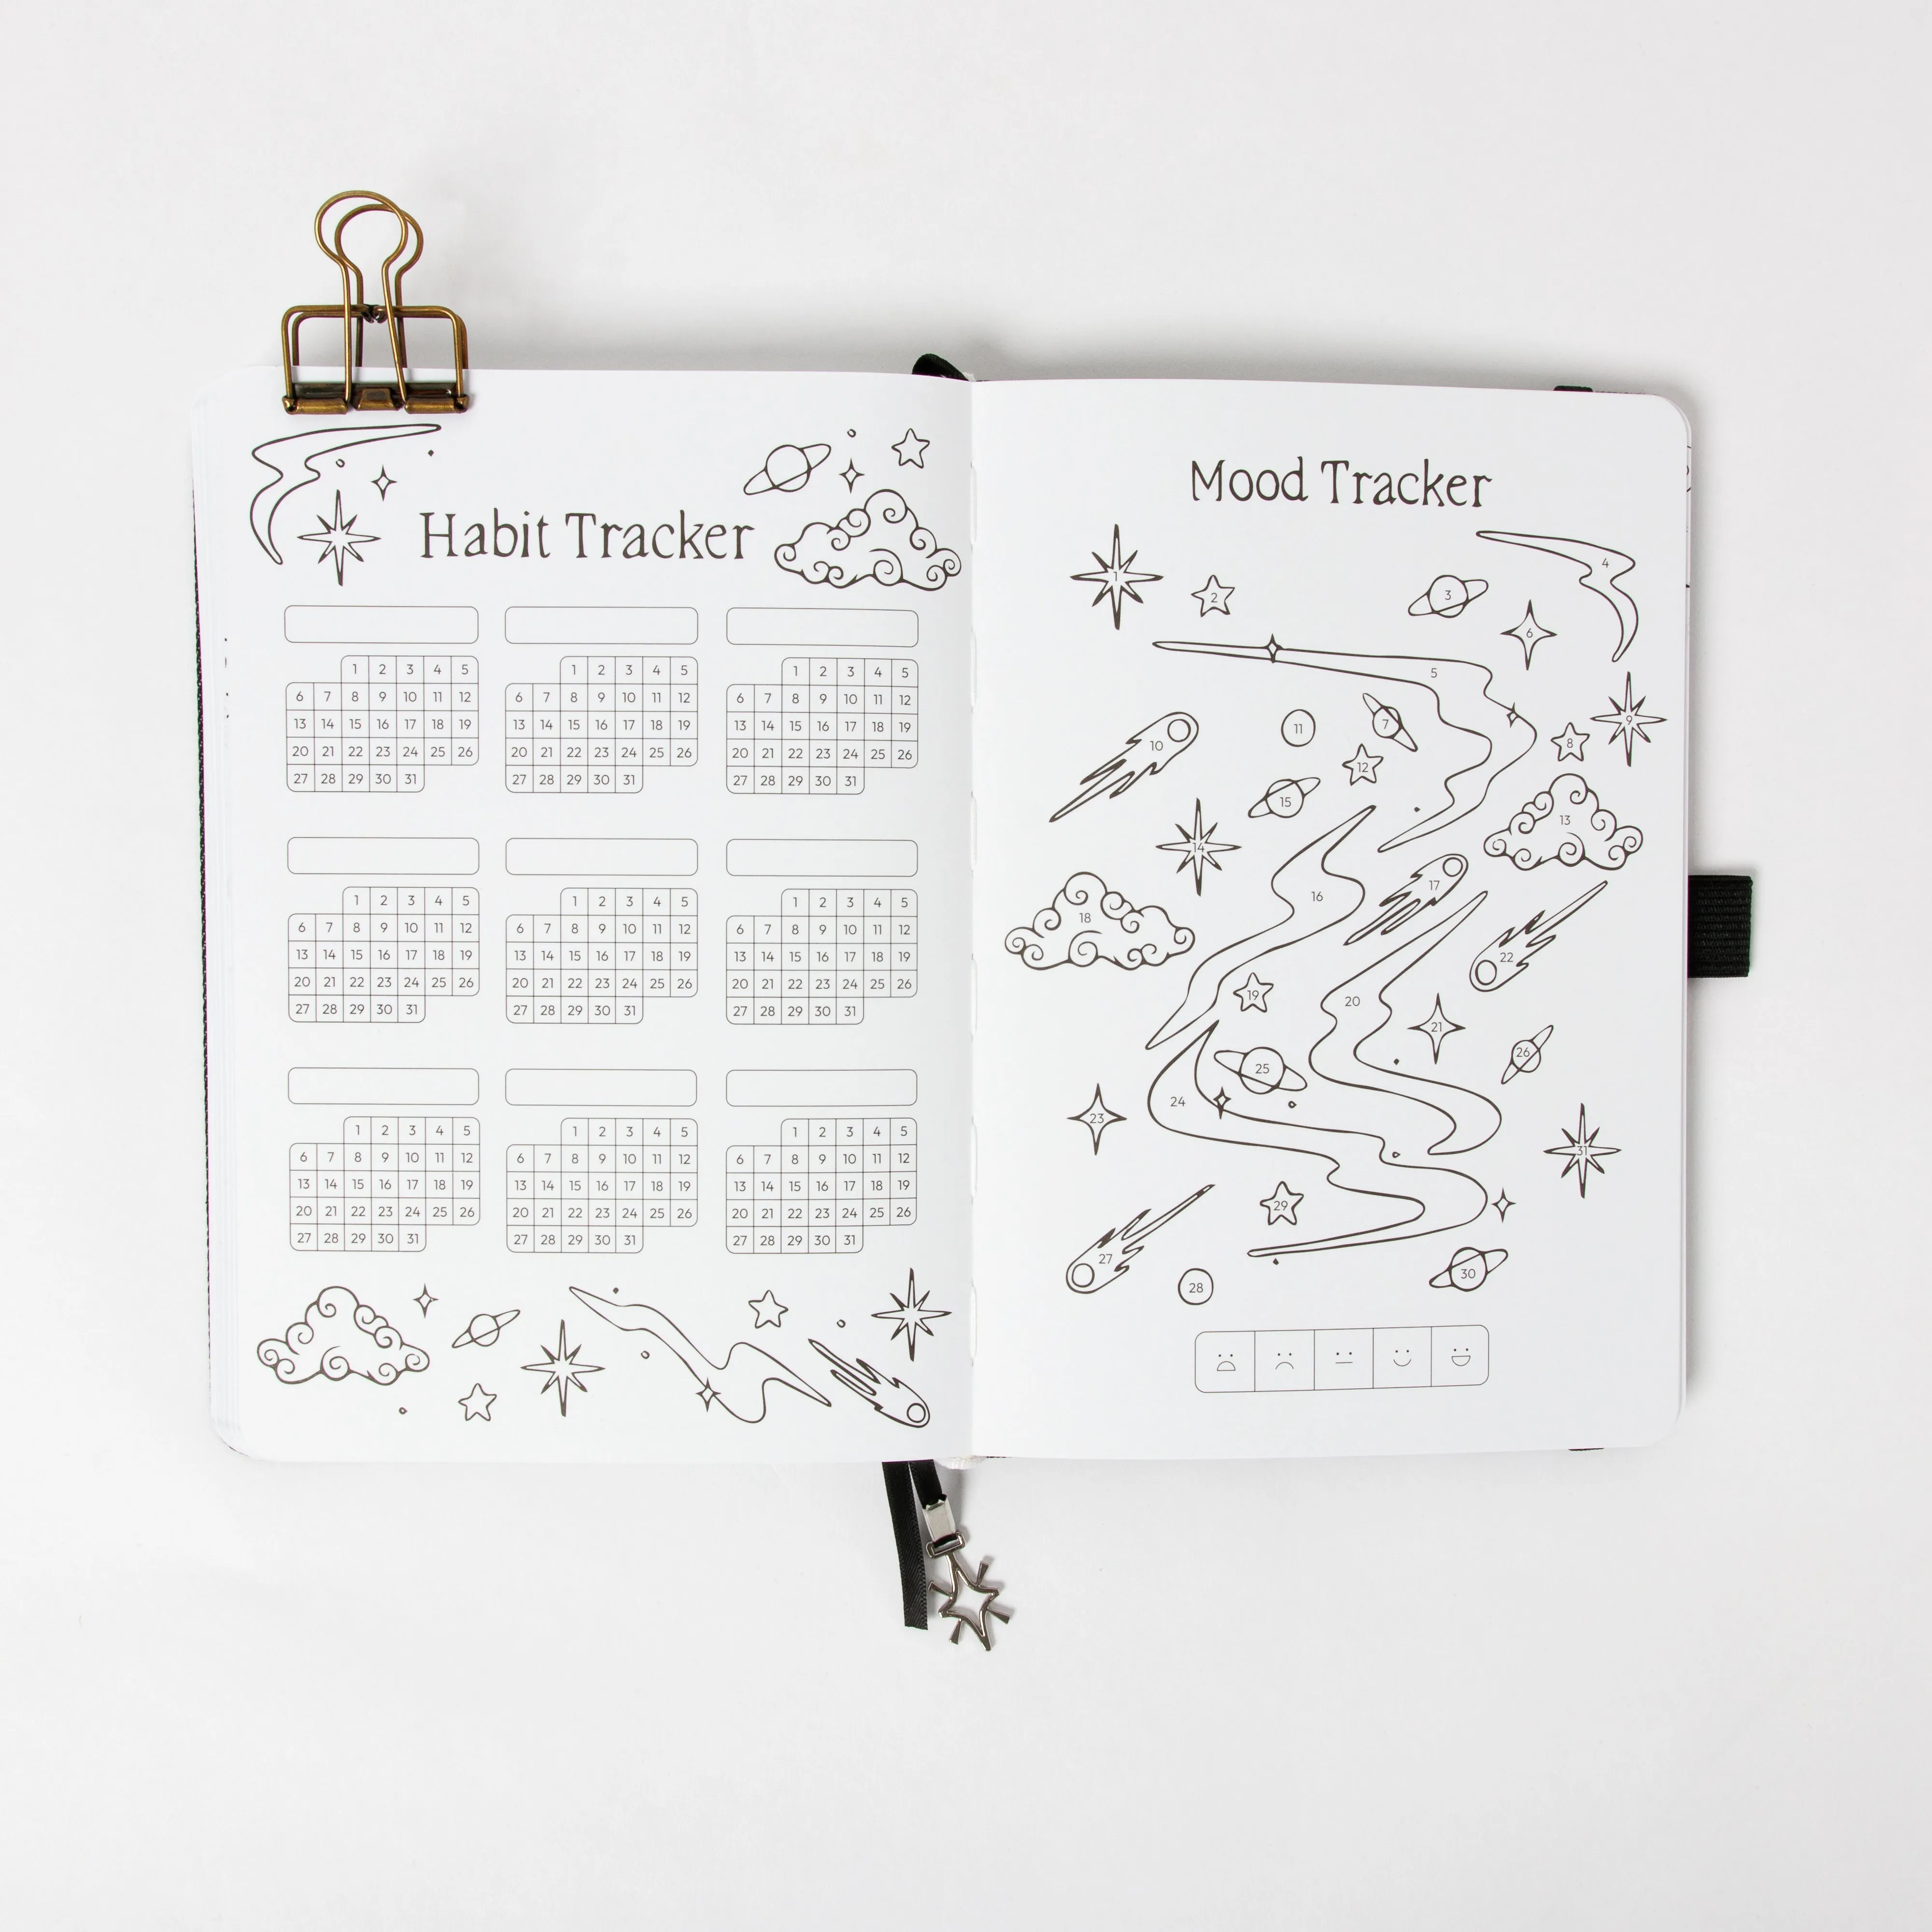 Habit Tracker
1 2 3 4 5 1 2 3 4 5 1 2 3 4 5
6 7 8 9 10 11 12 6 7 8 9 10 11 12 6 7 8 9 10 11 12
13 14 15 16 17 18 19 13 14 15 16 17 18 19 13 14 15 16 17 18 19
20 21 22 23 24 25 26 20 21 22 23 24 25 26 20 21 22 23 24 25 26
27 28 29 30 31 27 28 29 30 31 27 28 29 30 31
1 2 3 4 5 1 2 3 4 5 1 2 3 4 5
6 7 8 9 10 11 12 6 7 8 9 10 11 12 6 7 8 9 10 11 12
13 14 15 16 17 18 19 13 14 15 16 17 18 19 13 14 15 16 17 18 19
20 21 22 23 24 25 26 20 21 22 23 24 25 26 20 21 22 23 24 25 26
27 28 29 30 31 27 28 29 30 31 27 28 29 30 31
1 2 3 4 5 1 2 3 4 5 1 2 3 4 5
6 7 8 9 10 11 12 6 7 8 9 10 11 12 6 7 8 9 10 11 12
13 14 15 16 17 18 19 13 14 15 16 17 18 19 13 14 15 16 17 18 19
20 21 22 23 24 25 26 20 21 22 23 24 25 26 20 21 22 23 24 25 26
27 28 29 30 31 27 28 29 30 31 27 28 29 30 31
Mood Tracker
1
2
3
4
5
6
7
8
9
10
11
12
13
14
15
16
17
18
19
20
21
22
23
24
25
26
27
28
29
30
31